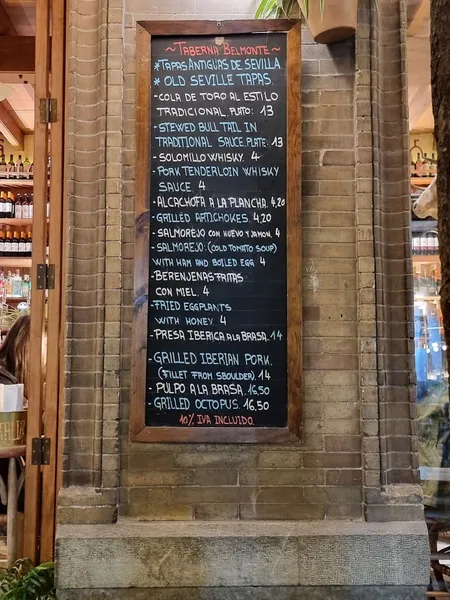 ~TABERNA BELMONTE~
*TAPAS ANTIGUAS DE SEVILLA.
* OLD SEVILLE TAPAS.
-COLA DE TORO AL ESTILO
TRADICIONAL. PLATO: 13
-STEWED BULL TAIL IN
TRADITIONAL SAUCE. PLATE: 13
-SOLOMILLO WHISKY. 4
-PORK TENDERLOIN WHISKY
SAUCE. 4
-ALCACHOFA A LA PLANCHA. 4,20
-GRILLED ARTICHOKES. 4,20
-SALMOREJO CON HUEVO Y JAMON. 4
-SALMOREJO: (COLD TOMATO SOUP)
WITH HAM AND BOILED EGG 4
-BERENJENAS FRITAS
CON MIEL. 4
-FRIED EGGPLANTS
WITH HONEY 4
-PRESA IBERICA A LA BRASA. 14
-GRILLED IBERIAN PORK.
(FILLET FROM SBOULDER). 14
-PULPO A LA BRASA. 16,50
-GRILLED OCTOPUS. 16,50
10% IVA INCLUIDO.